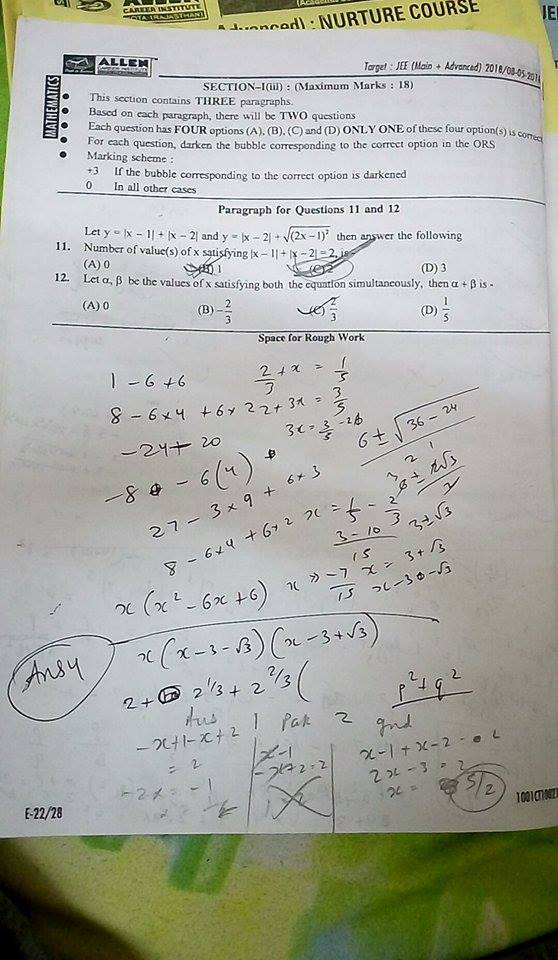 CAREER INSTITUTE
KOTA (RAJASTHAN)
Advanced) : NURTURE COURSE
ALLEN
CAREER INSTITUTE
Target : JEE (Main + Advanced) 2018/08-05-201
MATHEMATICS
SECTION–I(iii) : (Maximum Marks : 18)
• This section contains THREE paragraphs.
• Based on each paragraph, there will be TWO questions
• Each question has FOUR options (A), (B), (C) and (D) ONLY ONE of these four option(s) is correct
• For each question, darken the bubble corresponding to the correct option in the ORS
• Marking scheme :
+3 If the bubble corresponding to the correct option is darkened
0 In all other cases
Paragraph for Questions 11 and 12
Let y = |x – 1| + |x – 2| and y = |x – 2| + √(2x – 1)² then answer the following
11. Number of value(s) of x satisfying |x – 1| + |x – 2| = 2, is-
(A) 0 (B) 1 (C) 2 (D) 3
12. Let α, β be the values of x satisfying both the equation simultaneously, then α + β is -
(A) 0 (B) –2/3 (C) 2/3 (D) 1/5
Space for Rough Work
1 – 6 + 6 2/3 + x = 1/5
8 – 6×4 + 6×2 2 + 3x = 3/5
–24 + 20 3x = 3/5 – 2
6 ± √36 – 24
2
–8 – 6(4)
27 – 3×9 + 6+3
8 – 6×4 + 6×2 x = 1/5 – 2/3
3 – 10
15 3±√3
x (x² – 6x + 6) x => –7/15 x = 3+√3
x–3–√3
Ans4 x (x–3–√3) (x–3+√3)
2 + 2^1/3 + 2^2/3 (
p² + q²
Ans 1 Pak 2 gnd
–x+1–x+2 x–1 x–1+x–2 = 2
= 2 –x+2=2 2x–3 = 2
–2x = –1 x = 5/2
E-22/28